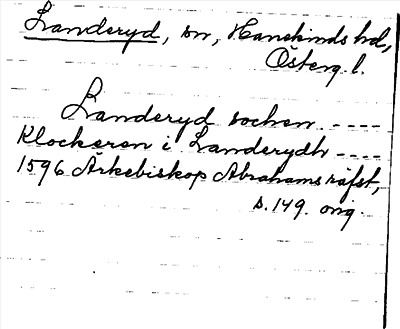 Landeryd, sn, Hanekinds hd,
Österg. l.
Landeryd sochen ----
Klockeren i Landerydh ----
1596 Ärkebiskop Abrahams räfst,
s. 149. orig.